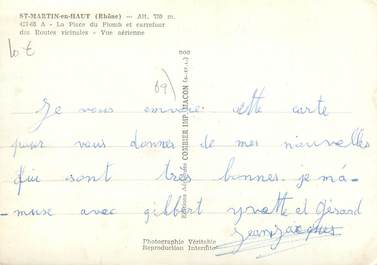 ST-MARTIN-en-HAUT (Rhône) — Alt. 750 m.
424-68 A - La Place du Plomb et carrefour
des Routes vicinales - Vue aérienne
69)
Je vous envoie cette carte
pour vous donner de mes nouvelles
qui sont très bonnes. je m'a-
-muse avec gilbert yvette et Gérard
Jean-Jacques
Editions Aériennes COMBIER IMP. MACON (S.-et-L.)
Photographie Véritable
Reproduction Interdite